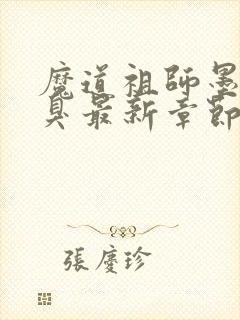 魔道祖師墨
臭最新章節
張慶珍